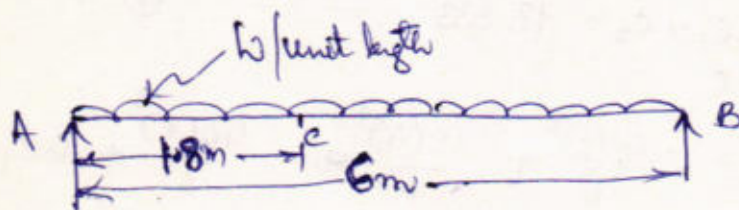 W/unit length
A
C
B
1.8m
6m